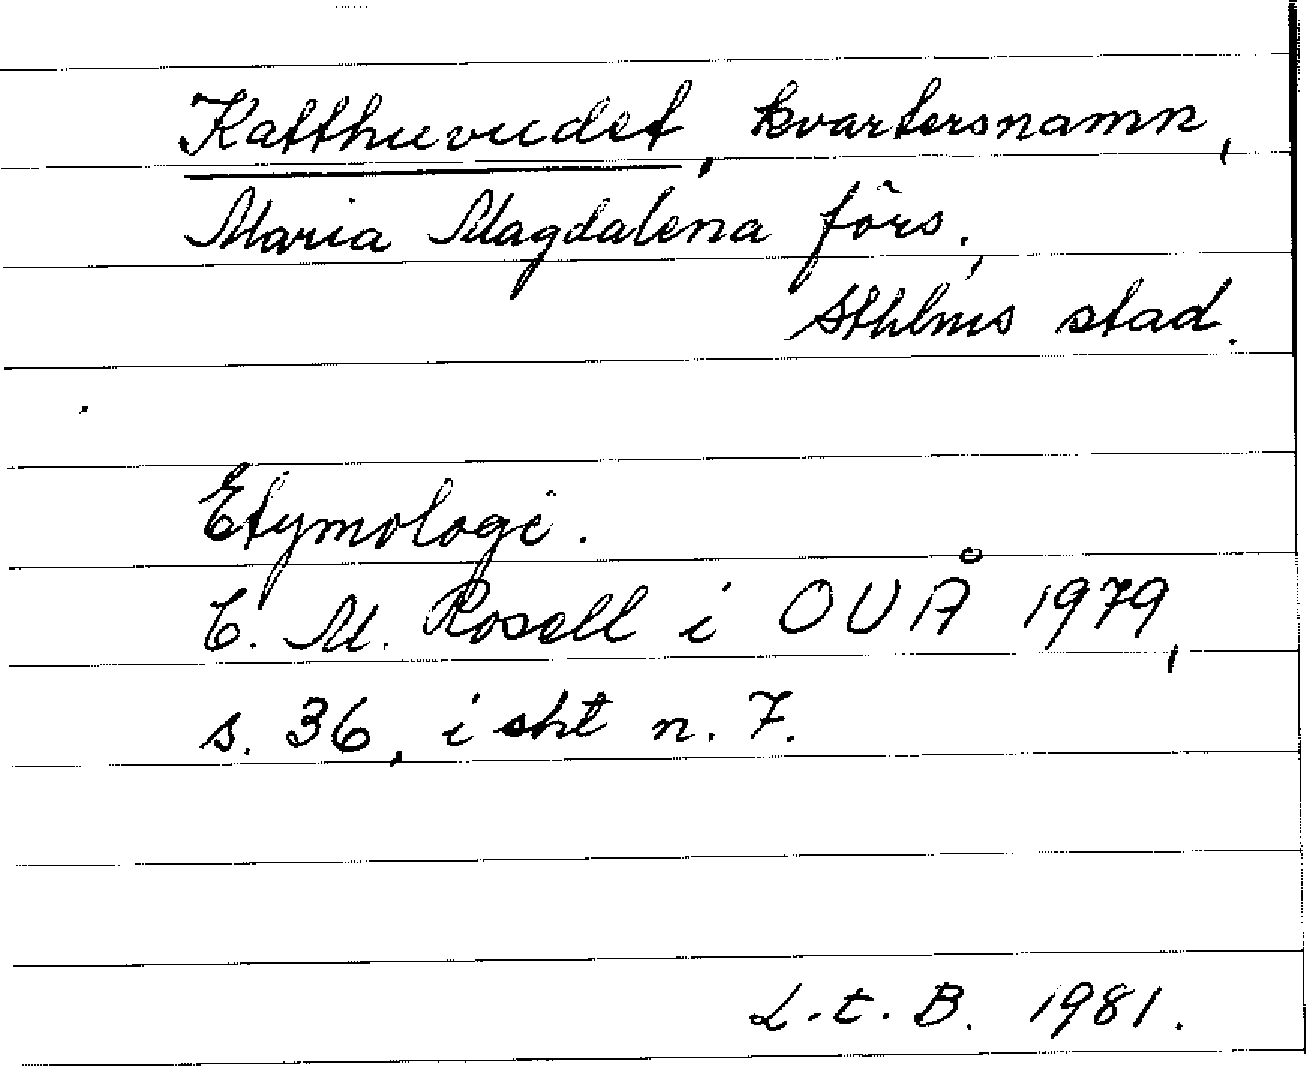 Katthuvudet, kvartersnamn,
Maria Magdalena förs.,
Sthlms stad.
Etymologi.
C. M. Rosell i OUÅ 1979,
s. 36, i sht n. 7.
L.t.B. 1981.